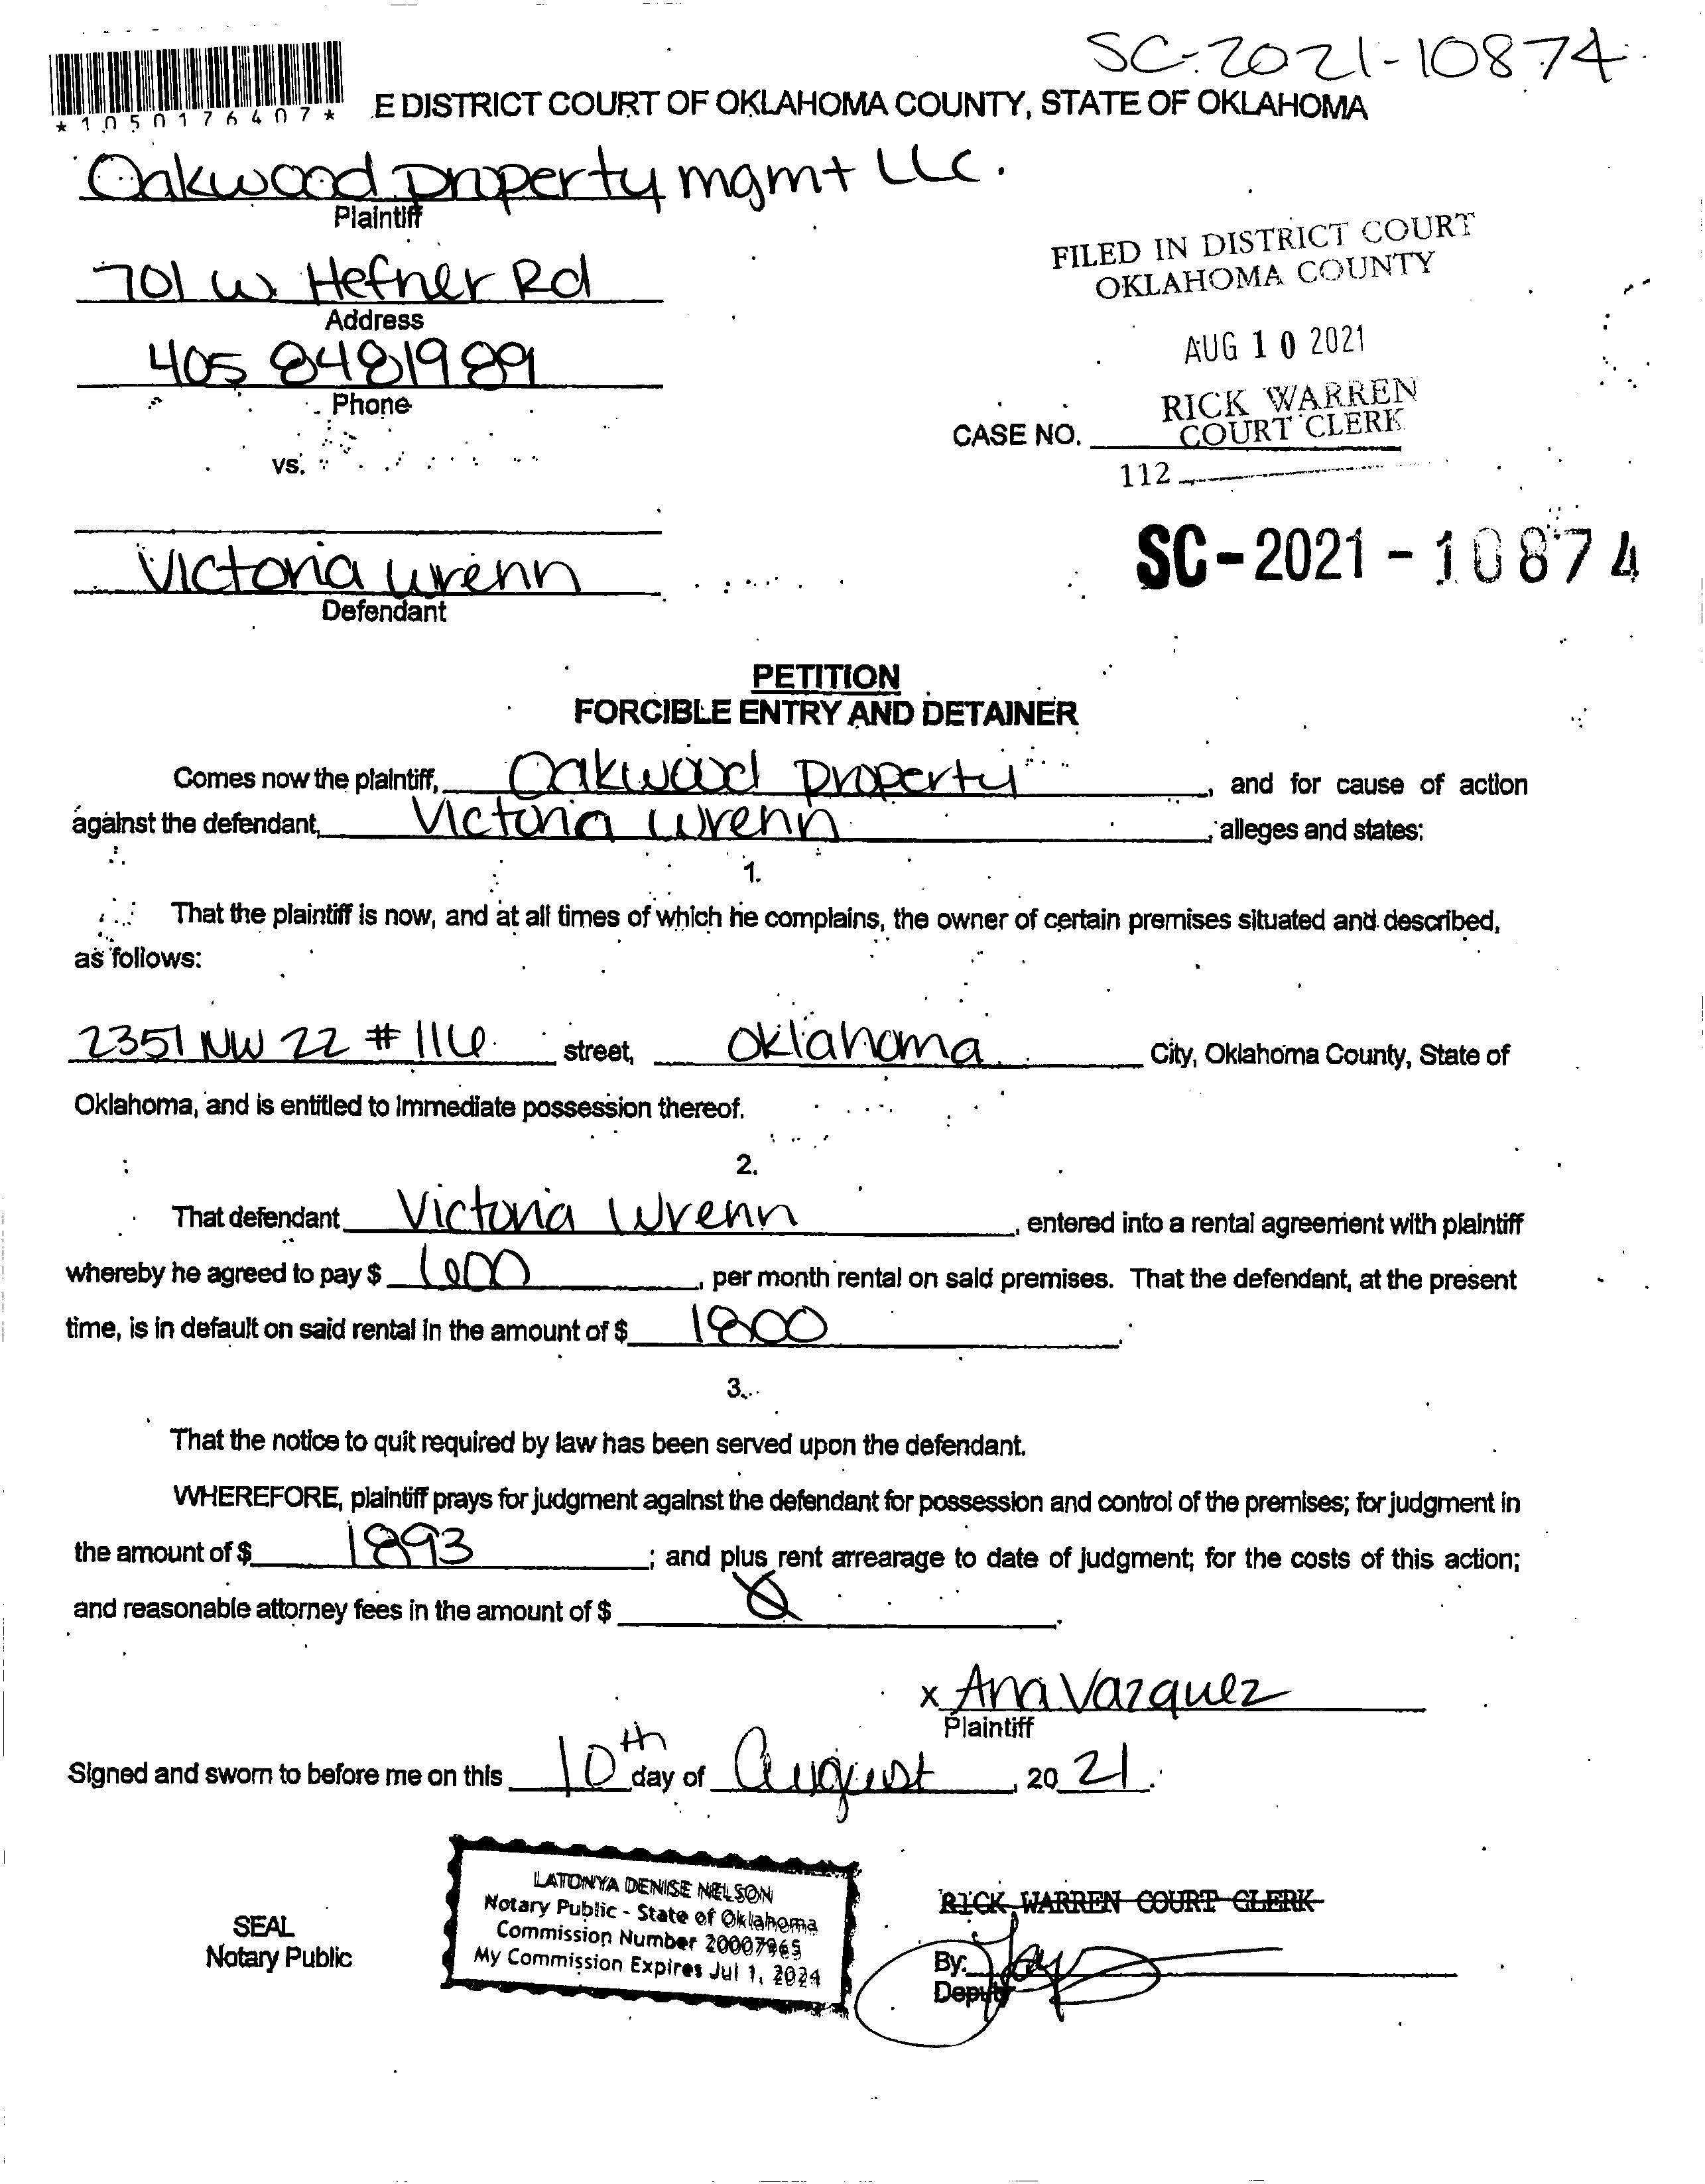 SC-2021-10874
*1050176407*
E DISTRICT COURT OF OKLAHOMA COUNTY, STATE OF OKLAHOMA
Oakwood property mgmt LLC.
Plaintiff
701 W. Hefner Rd
Address
405 8481989
Phone
vs.
FILED IN DISTRICT COURT
OKLAHOMA COUNTY
AUG 10 2021
RICK WARREN
COURT CLERK
CASE NO.
112
SC-2021-10874
Victoria Wrenn
Defendant
PETITION
FORCIBLE ENTRY AND DETAINER
Comes now the plaintiff, Oakwood property, and for cause of action
against the defendant, Victoria Wrenn, alleges and states:
1.
That the plaintiff is now, and at all times of which he complains, the owner of certain premises situated and described,
as follows:
2351 NW 22 # 116 street, Oklahoma City, Oklahoma County, State of
Oklahoma, and is entitled to immediate possession thereof.
2.
That defendant Victoria Wrenn, entered into a rental agreement with plaintiff
whereby he agreed to pay $ 600, per month rental on said premises. That the defendant, at the present
time, is in default on said rental in the amount of $ 1800.
3.
That the notice to quit required by law has been served upon the defendant.
WHEREFORE, plaintiff prays for judgment against the defendant for possession and control of the premises; for judgment in
the amount of $ 1893; and plus rent arrearage to date of judgment; for the costs of this action;
and reasonable attorney fees in the amount of $ 0.
x Ana Vazquez
Plaintiff
Signed and sworn to before me on this 10th day of August, 20 21.
SEAL
Notary Public
LATONYA DENISE NELSON
Notary Public - State of Oklahoma
Commission Number 20007965
My Commission Expires Jul 1, 2024
RICK WARREN COURT CLERK
By:
Deputy